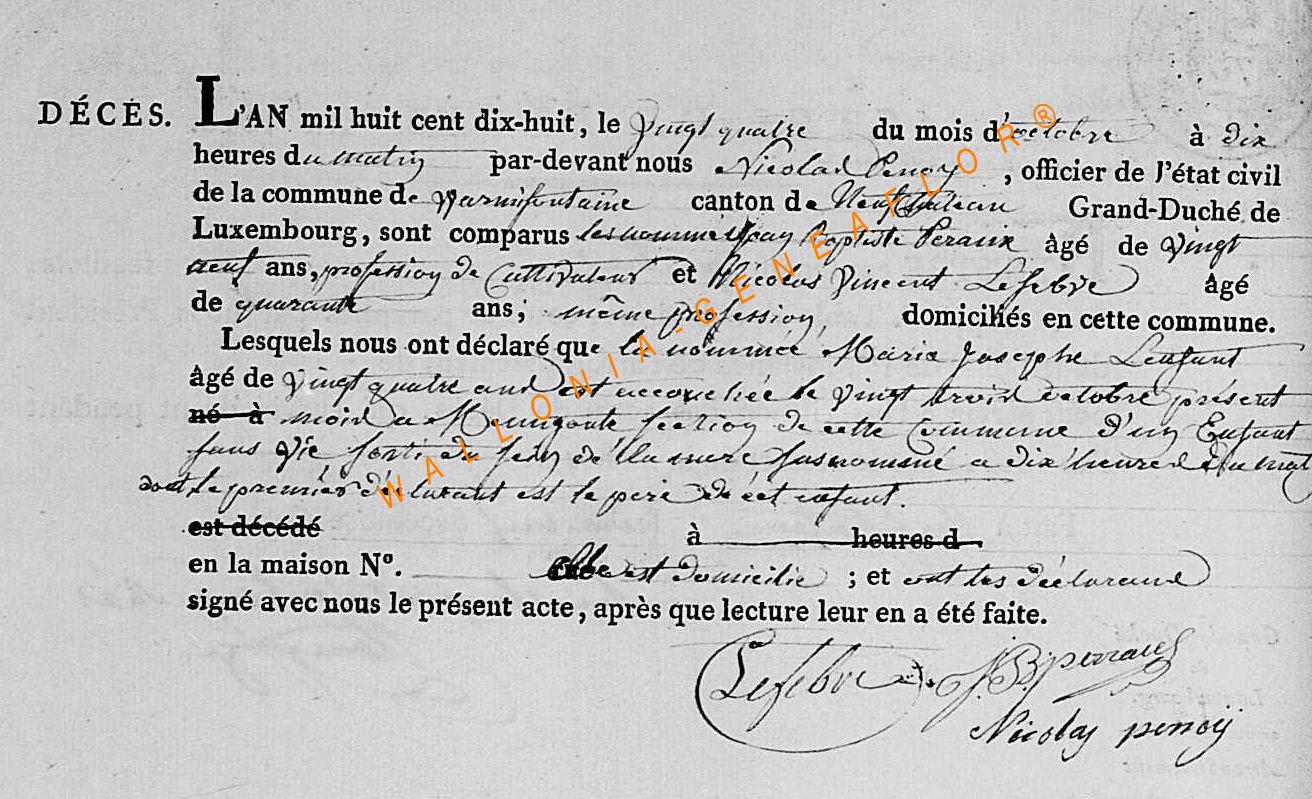 DÉCÈS. L'AN mil huit cent dix-huit, le vingt quatre du mois d'octobre à dix
heures du matin par-devant nous Nicolas Penoy, officier de l'état civil
de la commune de Warmifontaine canton de Neufchateau Grand-Duché de
Luxembourg, sont comparus les nommés Jean Baptiste Peraux âgé de vingt
neuf ans, profession de Cultivateur et Nicolas Vincent Lefebvre âgé
de quarante ans; même profession, domiciliés en cette commune.
Lesquels nous ont déclaré que la nommée Maria Josephe Lenfant
âgé de vingt quatre ans est accouchée le vingt trois octobre présent
né à mois a section de cette Commune d'un Enfant
sans vie sorti du sein de la mere susnommé a dix heures du mat
dont le premier déclarant est le pere de cet enfant.
est décédé à heures d
en la maison Nº. elle est domicilié ; et ont les déclarans
signé avec nous le présent acte, après que lecture leur en a été faite.
Lefebvre J. B. perraux
Nicolas penoy
WALLONIA-GENEAFLOR®